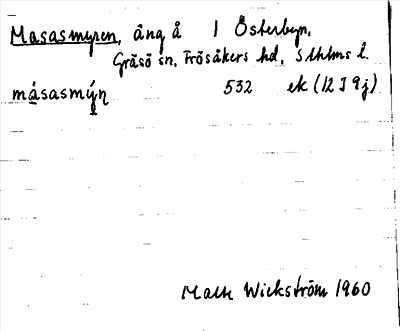 Masasmyren, äng å 1 Österbyn,
Gräsö sn, Frösåkers hd, Sthlms l.
másasmýn 532 ek (12 I 9j)
Mats Wickström 1960